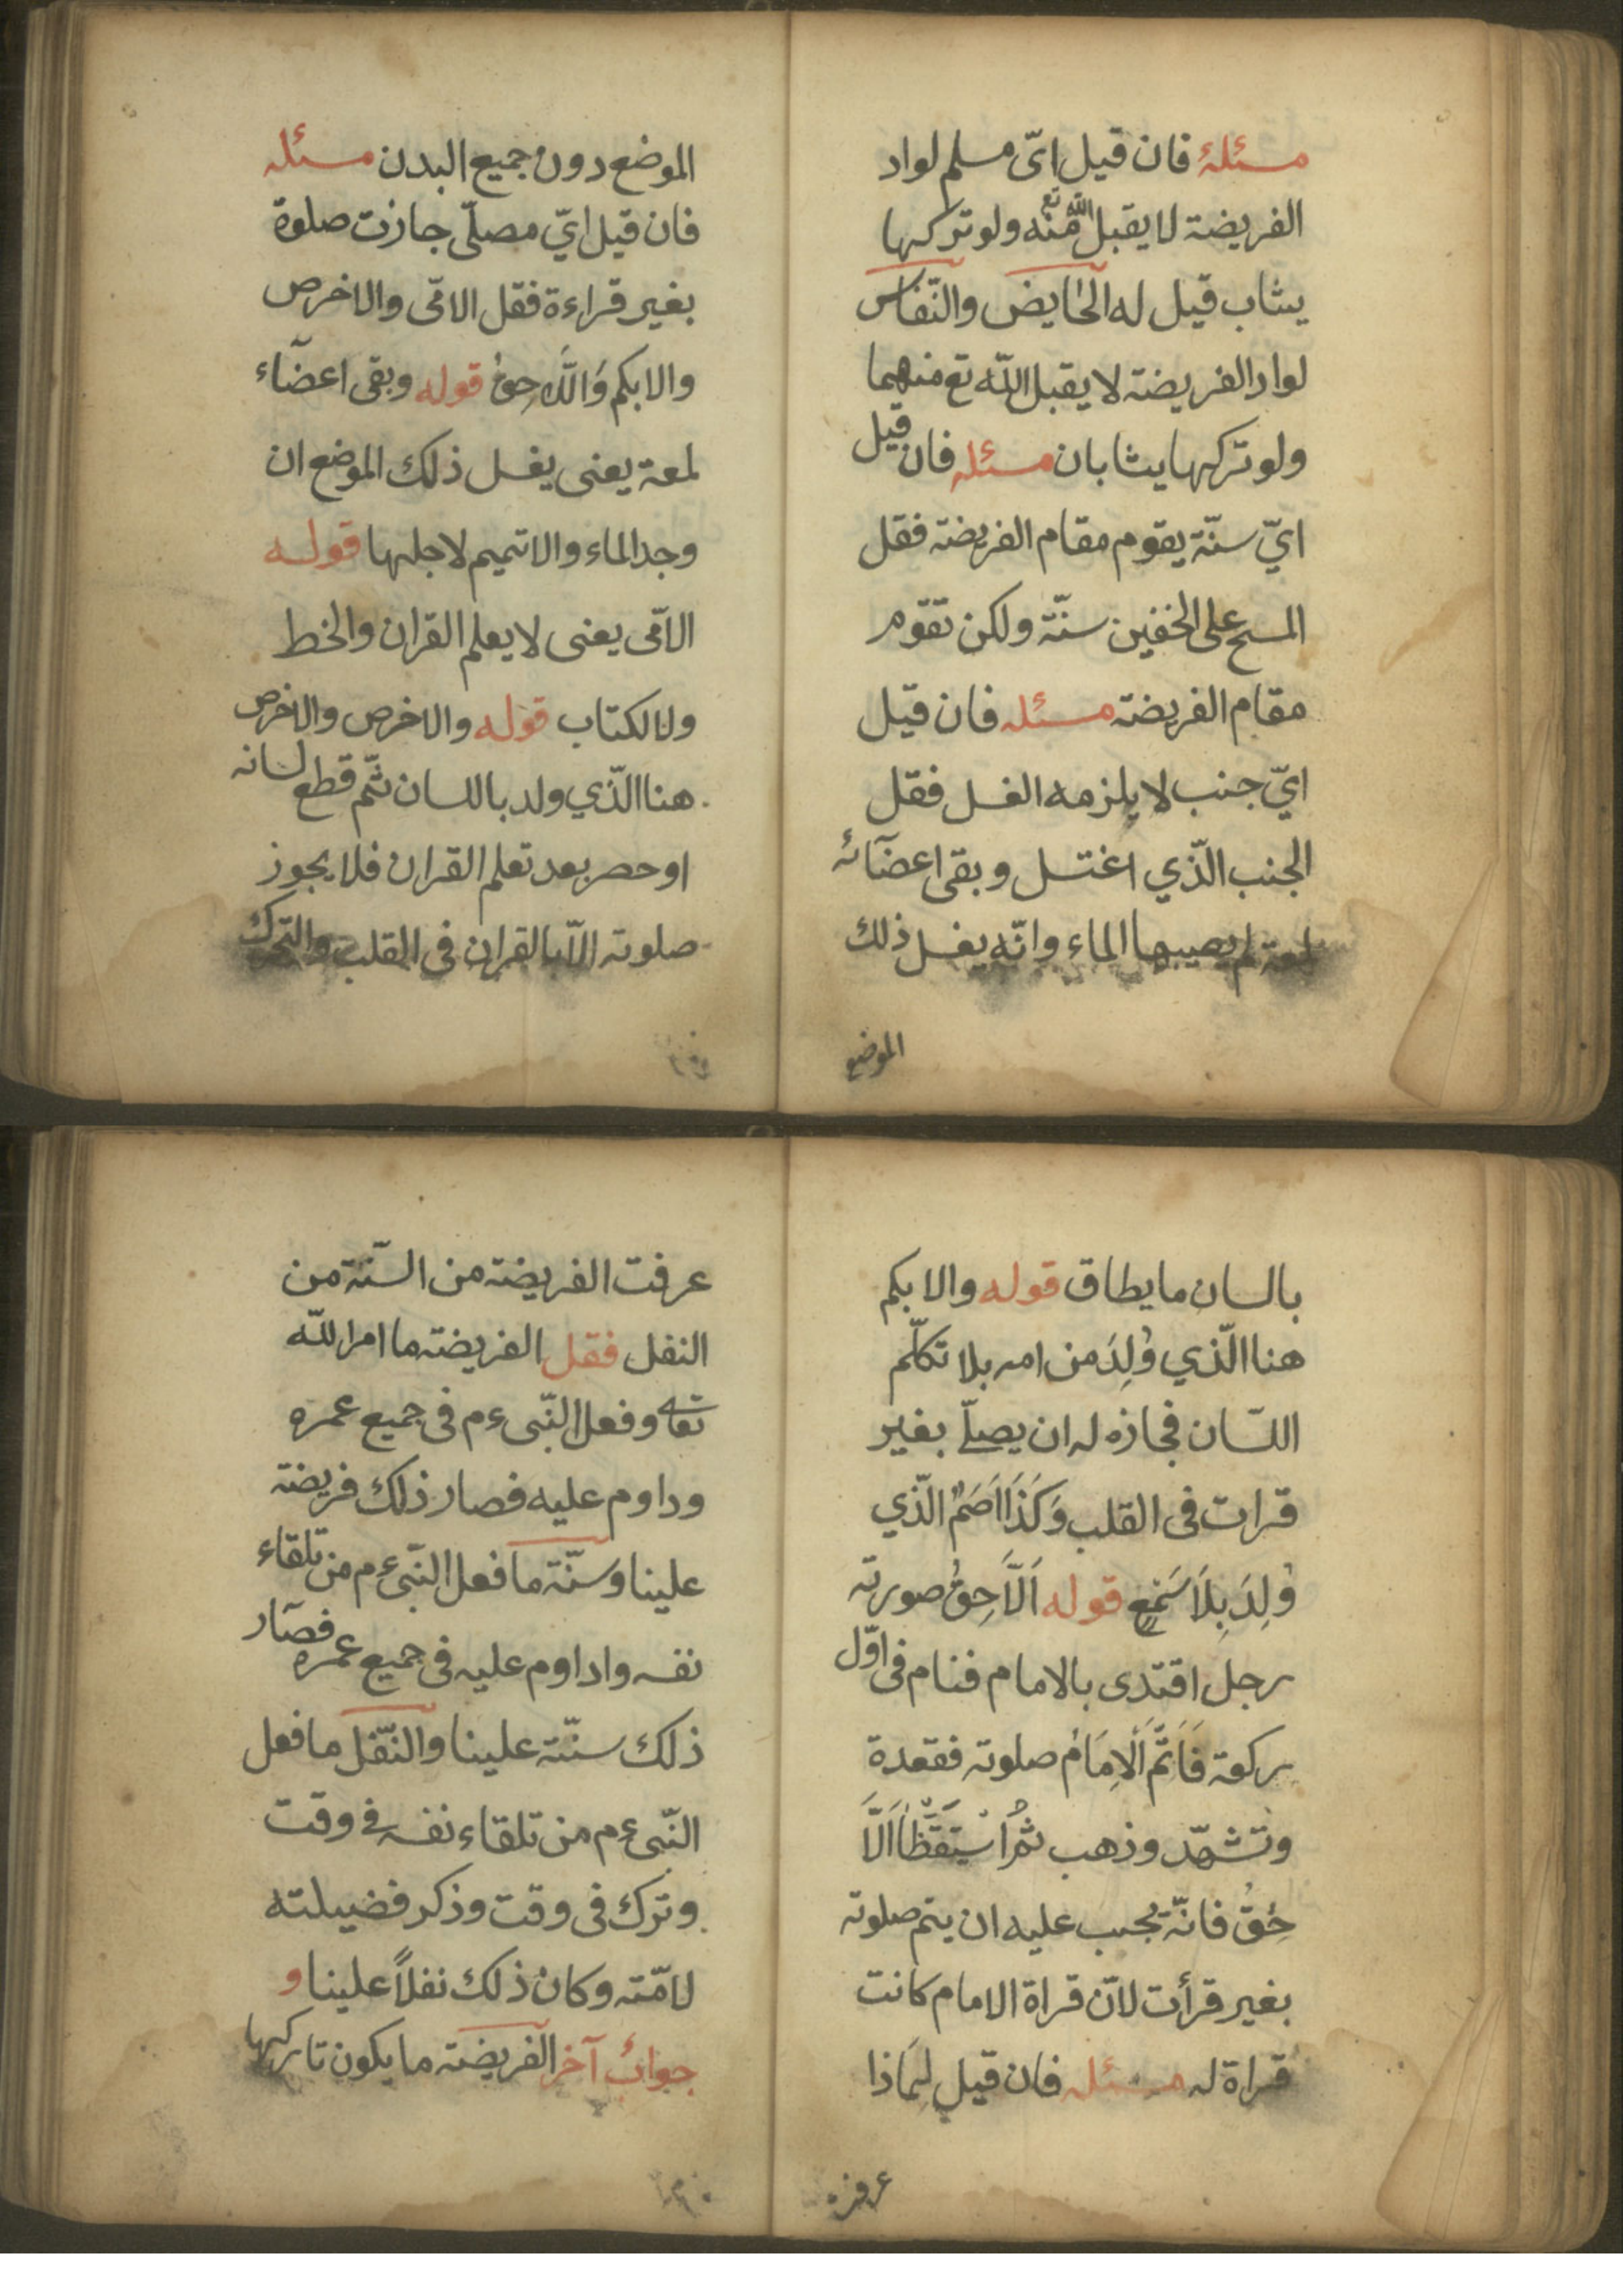 مسئلة فان قيل ايّ مسلم لواد
الفريضة لا يقبل الله تع منه ولو تركها
يثاب قيل له الحايض والنّفاس
لواد الفريضة لا يقبل الله تع منهما
ولو تركها يثابان مسئله فان قيل
ايّ سنّة يقوم مقام الفريضة فقل
المسح على الخفين سنّة ولكن تقوم
مقام الفريضة مسئله فان قيل
ايّ جنب لا يلزمه الغسل فقل
الجنب الّذي اغتسل وبقى اعضآئه
لمعة لم يصيبها الماء وانّه يغسل ذلك
الموضع
الموضع دون جميع البدن مسئله
فان قيل ايّ مصلّى جازت صلوة
بغير قراءة فقل الامّى والاخرص
والابكم وَاللَّاحِقْ قوله وبقى اعضآء
لمعة يعنى يغسل ذلك الموضع ان
وجد الماء والا تميم لاجلها قوله
الامّى يعنى لا يعلم القران والخط
ولا لكتاب قوله والاخرص والاخرص
هنا الّذي ولد باللسان ثمّ قطع لسانه
او حصر بعد تعلم القران فلا يجوز
صلوته الّا بالقران فى القلب والتحرك
بالسان ما يطاق قوله والابكم
هنا الّذي وُلِدَ من امه بلا تكلّم
اللسّان فجازه له ان يصلّے بغير
قرات فى القلب وَكَذَا اَصَمْ الّذي
وُلِدَ بِلَا سَمْعٍ قوله اَلَّاحِقُ صورته
رجل اقتدى بالامام فنام فى اوّل
ركعة فَاَتَمَّ اَلْاِمَامُ صلوته فقعدة
وتشهّد وذهب ثُمَّ اسْتَيَقَّظَ اَلَّا
حِقُ فانّه يجب عليه ان يتم صلوته
بغير قرأت لانّ قراة الامام كانت
قراة له مسئله فان قيل لِمَاذا
عرفت
عرفت الفريضة من السّنة من
النفل فقل الفريضة ما امر الله
تعالى وفعل النّبى ءم فى جميع عمره
وداوم عليه فصار ذلك فريضة
علينا وسنّة ما فعل النّبى ءم من تلقاء
نفسه واداوم عليه فى جميع عمره فصار
ذلك سنّة علينا والنّفل ما فعل
النّبى ءم من تلقاء نفسه فے وقت
وترك فى وقت وذكر فضيلته
لامّته وكان ذلك نفلاً علينا و
جوابٌ آخر الفريضة ما يكون تاركها